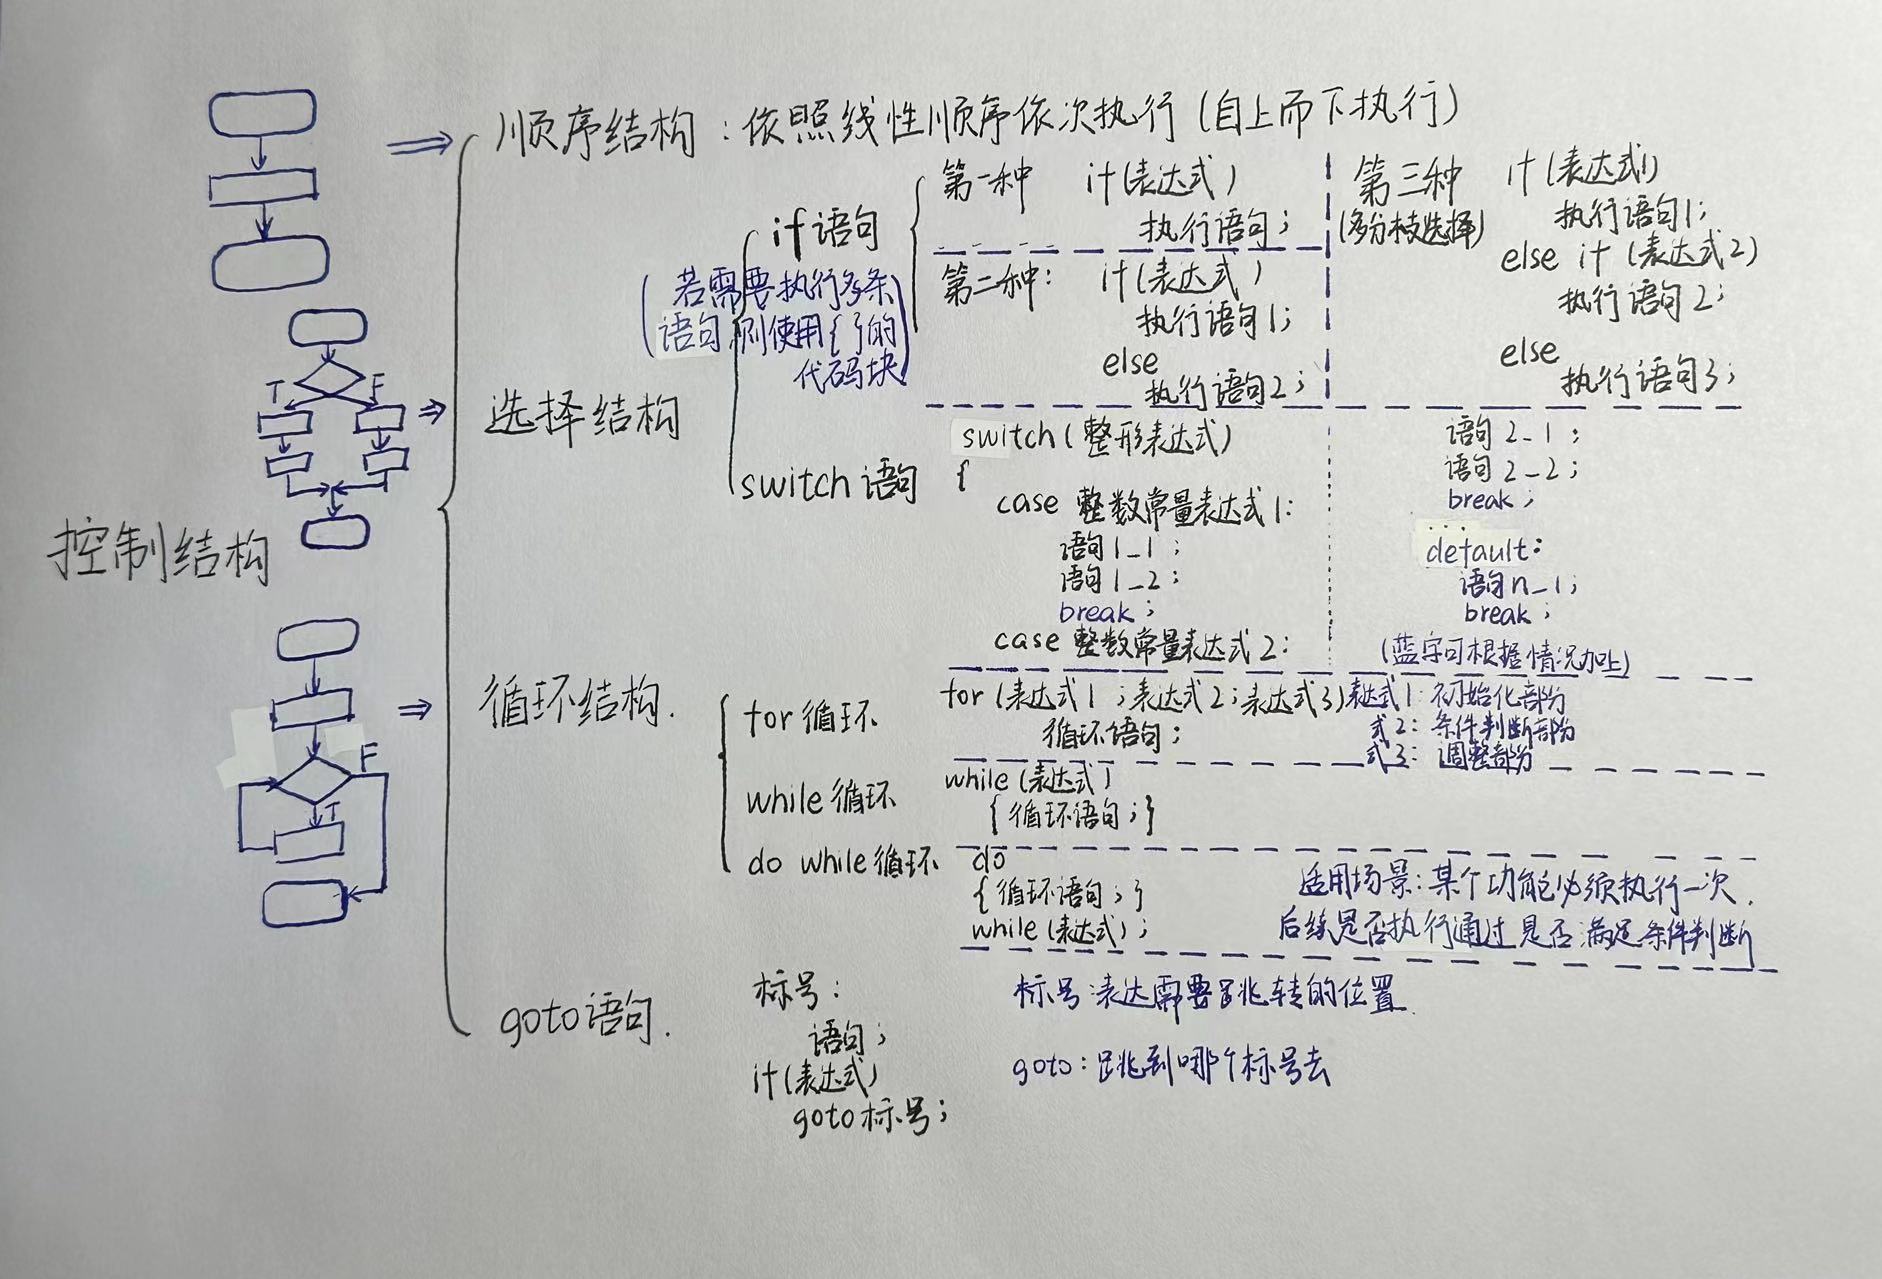 控制结构
顺序结构：依照线性顺序依次执行（自上而下执行）
选择结构
if语句
（若需要执行多条
语句，则使用{ }的
代码块）
第一种 if(表达式)
执行语句;
第二种: if(表达式)
执行语句1;
else
执行语句2;
第三种 if(表达式1)
(多分枝选择) 执行语句1;
else if (表达式2)
执行语句2;
else
执行语句3;
T F
switch语句
switch(整形表达式)
{
case 整数常量表达式1:
语句1_1;
语句1_2;
break;
case 整数常量表达式2:
语句2_1;
语句2_2;
break;
...
default:
语句n_1;
break;
(蓝字可根据情况加上)
循环结构.
for循环
for(表达式1;表达式2;表达式3)
循环语句;
表达式1:初始化部份
式2:条件判断部份
式3:调整部份
while循环
while(表达式)
{循环语句;}
do while循环
do
{循环语句;}
while(表达式);
适用场景:某个功能必须执行一次,
后续是否执行通过是否满足条件判断
F
T
goto语句.
标号:
语句;
if(表达式)
goto标号;
标号:表达需要跳转的位置
goto:跳到哪个标号去